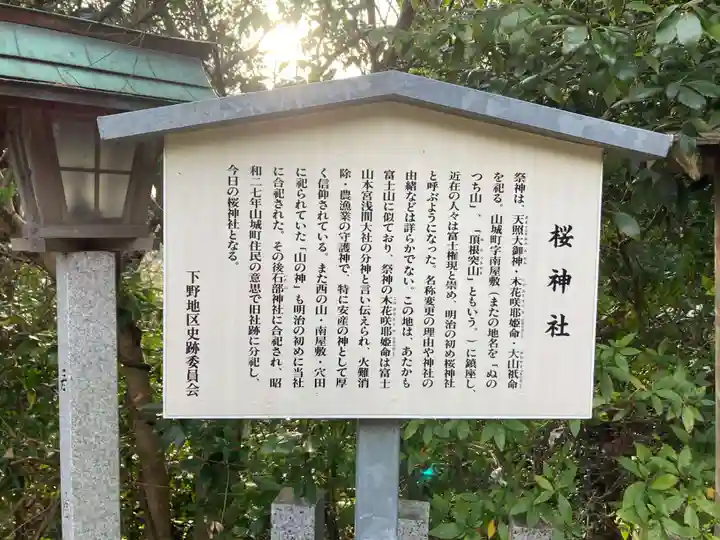 桜神社
祭神は、天照大御神・木花咲耶姫命・大山祇命
を祀る。山城町字南屋敷(またの地名を「ぬの
つち山」、「頂根突山」ともいう。)に鎮座し、
近在の人々は富士権現と崇め、明治の初め桜神社
と呼ぶようになった。名称変更の理由や神社の
由緒などは詳らかでない。この地は、あたかも
富士山に似ており、祭神の木花咲耶姫命は富士
山本宮浅間大社の分神と言い伝えられ、火難消
除・農漁業の守護神で、特に安産の神として厚
く信仰されている。また西の山・南屋敷・穴田
に祀られていた「山の神」も明治の初めに当社
に合祀された。その後石部神社に合祀され、昭
和二七年山城町住民の意思で旧社跡に分祀し、
今日の桜神社となる。
下野地区史跡委員会